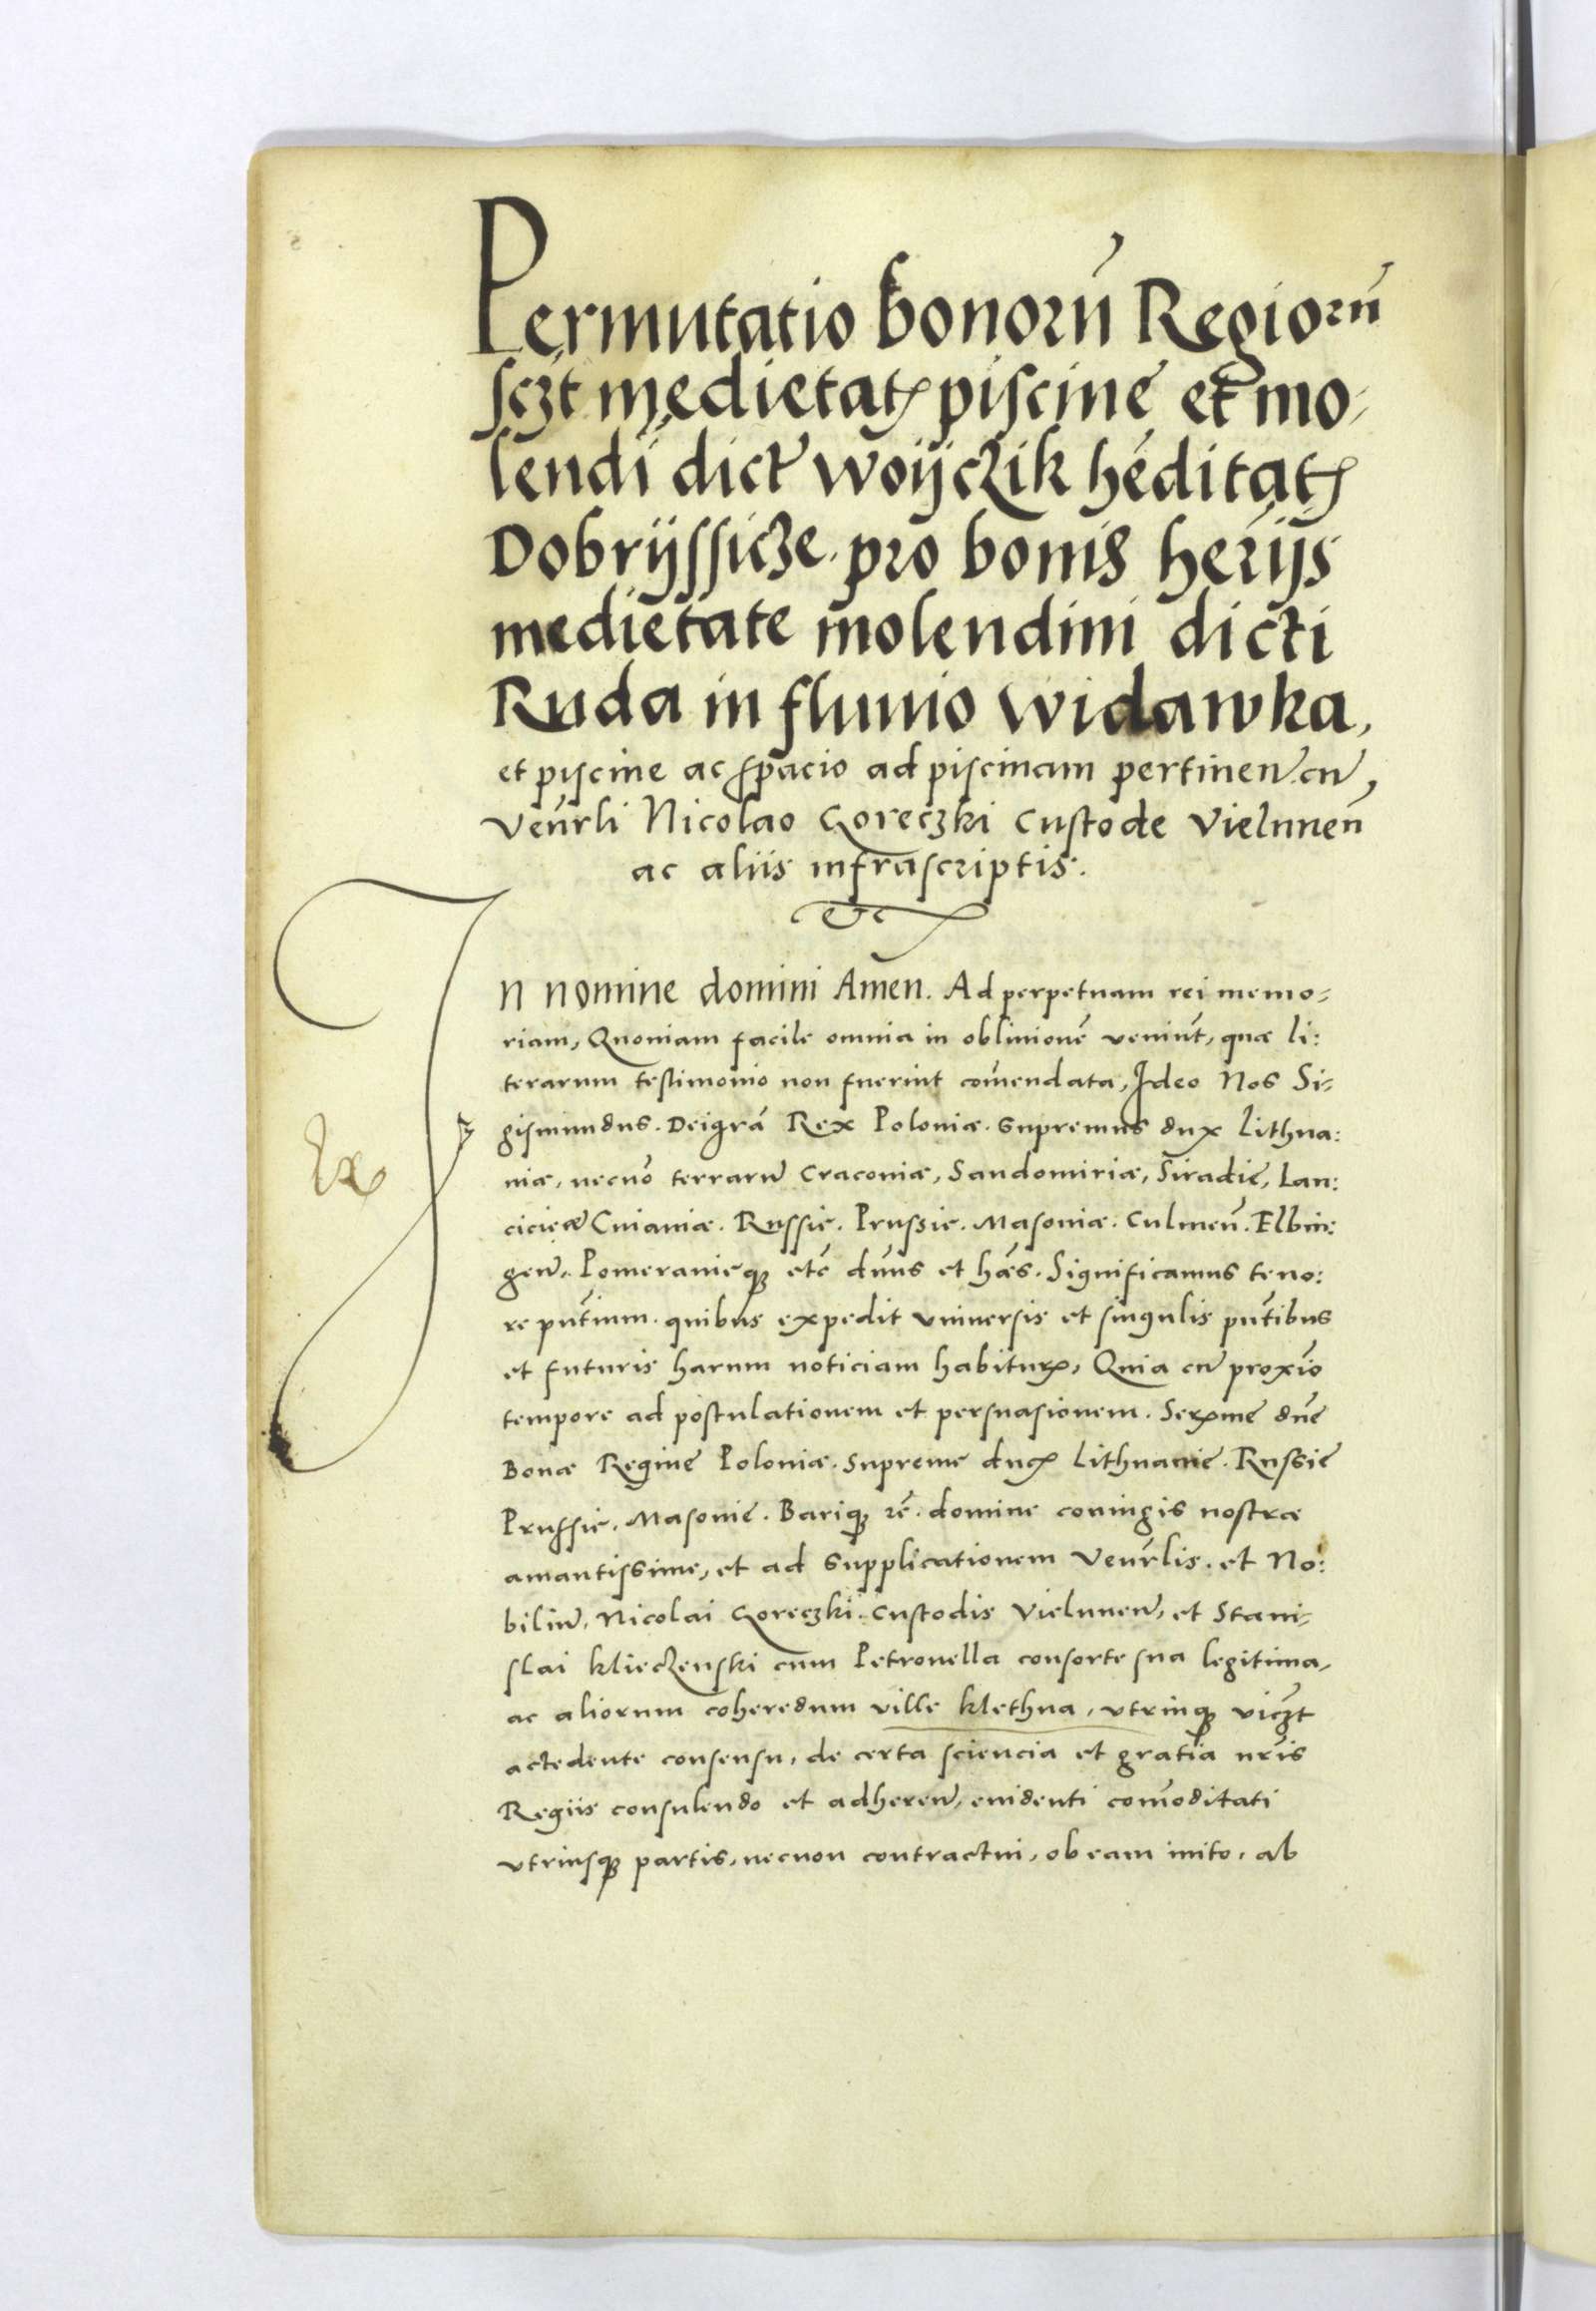 Permutatio bonorū Regiorū
sczt medietatꝭ piscinę et mo-
lendi dict woyczik hēditatꝭ
Dobrijssicze. pro bonis herijs
medietate molendini dicti
Ruda in fluuio widawka,
et piscine ac spacio ad piscinam pertineñ. cū
Veñrli Nicolao Goreczki Custode Vieluneñ
ac aliis infrascriptis.
In nomine domini Amen. Ad perpetuam rei memo-
riam, Quoniam facile omnia in obliuionē veniūt, quæ li:
terarum testimonio non fuerint com̄endata, Ideo Nos Si-
gismundus. Dei grã Rex Poloniæ. Supremus dux Lithua:
Ex
niæ, necnō terrarū Craconiæ, Sandomiriæ, Siradię, Lan:
cicięæ Cuiauiæ. Russię. Prussię. Masoniæ. Culmeñ. Elbin:
geñ. Pomeranięqꝫ etc̄ dn̄us et hæs. Significamus teno:
re pn̄tium. quibus expedit vniuersis et singulis pn̄tibus
et futuris harum noticiam habiturꝭ, Quia cū proxīo
tempore ad postulationem et persuasionem. Serꝭmę dn̄ę
Bonæ Reginę Poloniæ. Supreme ducꝭ Lithuanię. Russię
Prussię. Masonię. Bariqꝫ rē. domine coniugis nostræ
amantissime, et ad supplicationem Veñrlis. et No:
biliū, Nicolai Goreczki. Custodis Vieluneñ, et Stani-
slai klieczenski cum Petronella consorte sua legitima,
ac aliorum coheredum ville klethna, vtrinqꝫ viczt
actedente consensu, de certa sciencia et gratia nr̄is
Regiis consulendo et adhereñ, euidenti com̄oditati
vtriusqꝫ partis, necnon contractui, ob eam inito, ab